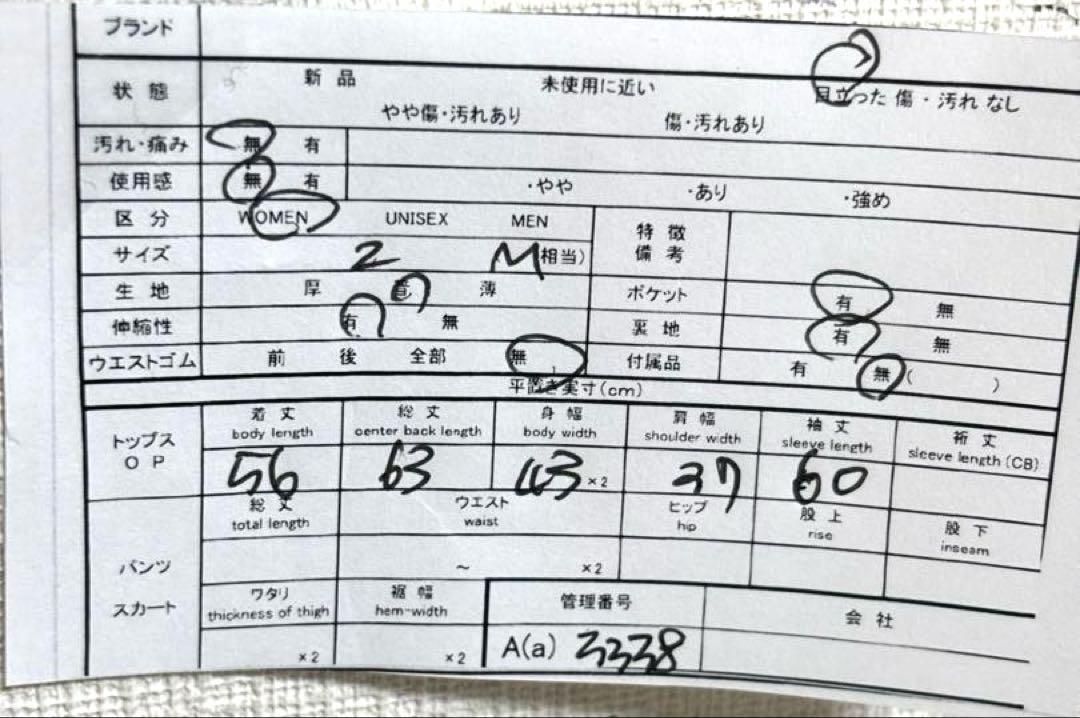 ブランド
状態 新品 未使用に近い 目立った 傷・汚れ なし
やや傷・汚れあり 傷・汚れあり
汚れ・痛み 無 有
使用感 無 有 ・やや ・あり ・強め
区分 WOMEN UNISEX MEN 特徴 備考
サイズ 2 M 相当)
生地 厚 普 薄 ポケット 有 無
伸縮性 有 無 裏地 有 無
ウエストゴム 前 後 全部 無 付属品 有 無 ( )
平置き実寸(cm)
トップス OP 着丈 総丈 身幅 肩幅 袖丈 裄丈
body length center back length body width shoulder width sleeve length sleeve length (CB)
56 63 43 ×2 37 60
総丈 ウエスト ヒップ 股上 股下
total length waist hip rise inseam
パンツ ~ ×2
スカート ワタリ 裾幅 管理番号 会社
thickness of thigh hem-width
×2 ×2 A(a) 3338